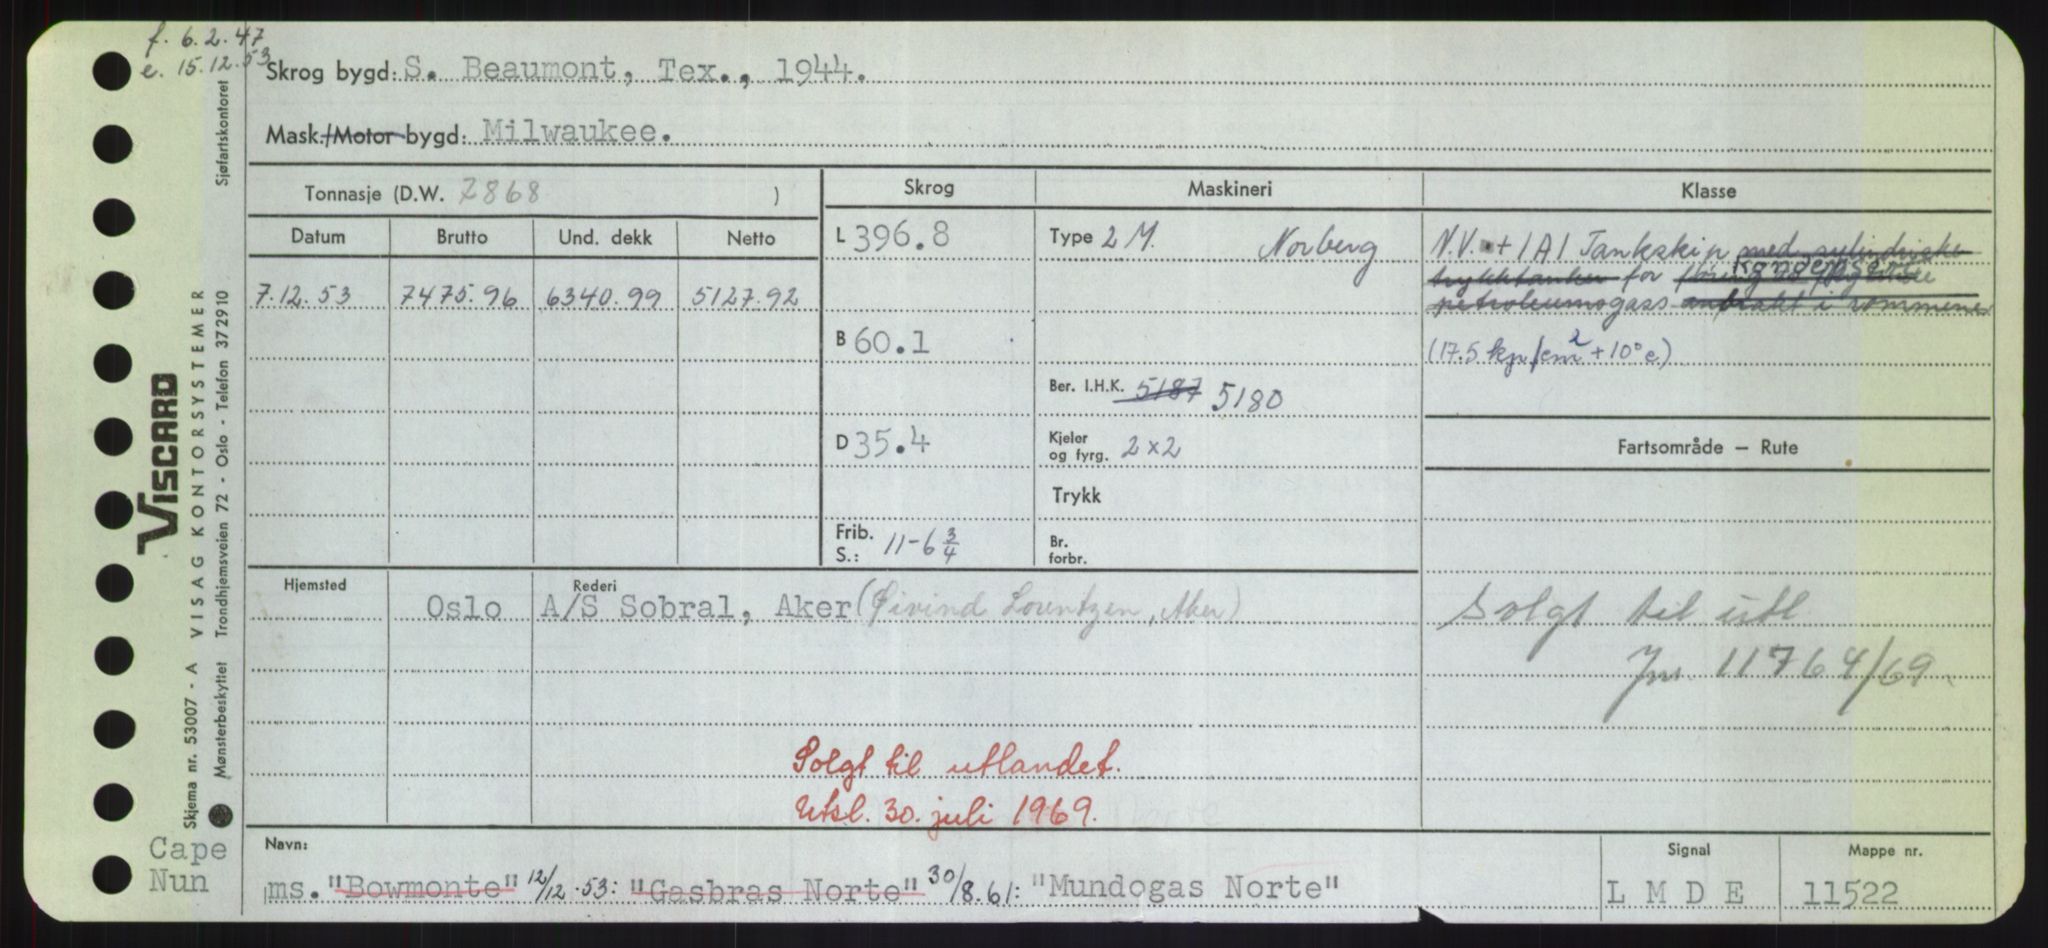 f. 6.2.47
e. 15.12.53
Skrog bygd: S. Beaumont, Tex., 1944.
Mask./Motor bygd: Milwaukee.
Tonnasje (D.W. 7868 )
Skrog
Maskineri
Klasse
Datum Brutto Und. dekk Netto
7.12.53 7475.96 6340.99 5127.92
L 396.8
B 60.1
D 35.4
Frib. S.: 11-6 3/4
Type 2 M. Norberg
Ber. I.H.K. 5187 5180
Kjeler og fyrg. 2x2
Trykk
Br. forbr.
N.V. + 1A1 Tankskip med sylindriske
trykktanker for kondensert
petroleumsgass i rommene
(17.5 kp/cm2 +10°c)
Fartsområde – Rute
Solgt til utl
Jnr. 11764/69.
Hjemsted Rederi
Oslo A/S Sobral, Aker (Øivind Lorentzen, Aker)
Solgt til utlandet.
Utsl. 30. juli 1969.
Navn:
ms. "Bowmonte" 12/12.53: "Gasbras Norte" 30/8.61: "Mundogas Norte"
Signal
L M D E
Mappe nr.
11522
Cape
Nun
VISCARD
VISAG KONTORSYSTEMER
Trondhjemsveien 72 - Oslo - Telefon 372910
Sjøfartskontoret
Skjema nr. 53007 - A
Mønsterbeskyttet